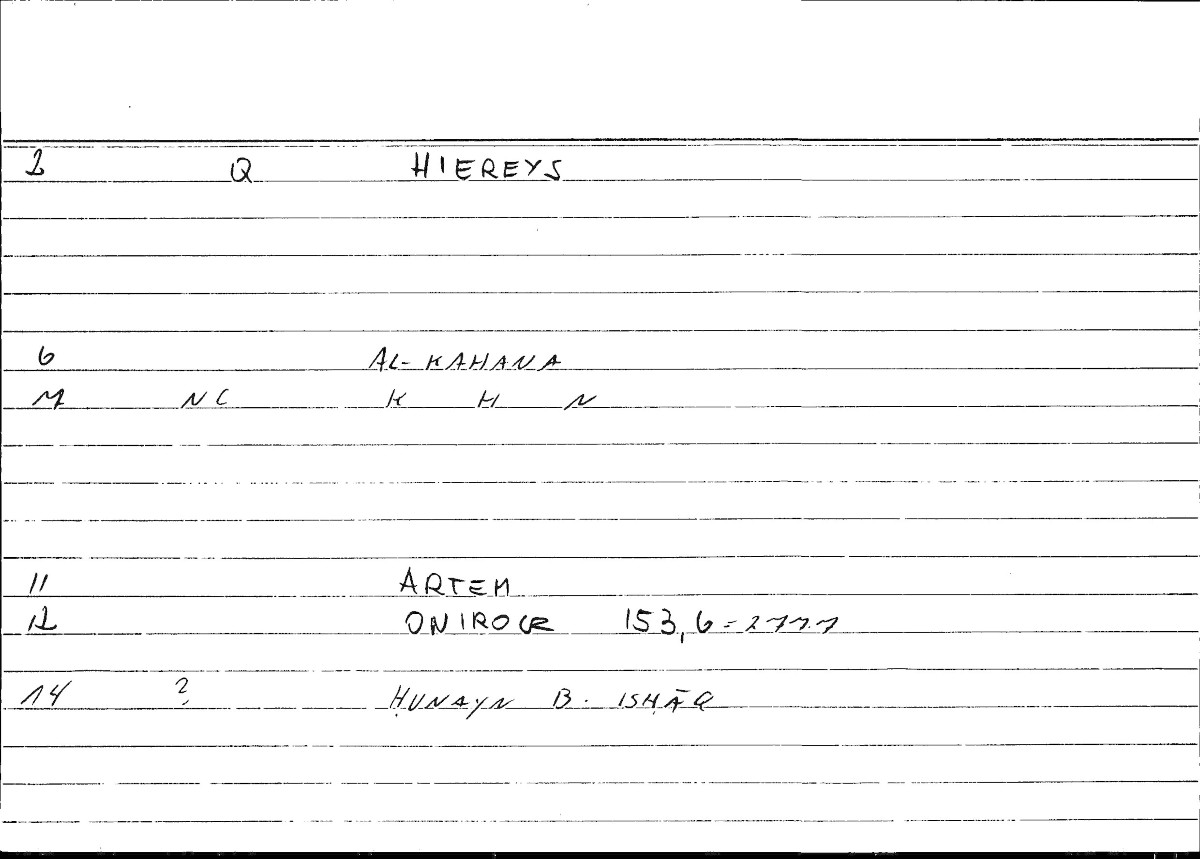 2 Q HIEREYS
6 AL-KAHANA
NC K H N
11 ARTEM
12 ONIROCR 153,6 =
14 ? ḤUNAYN B. ISḤĀQ